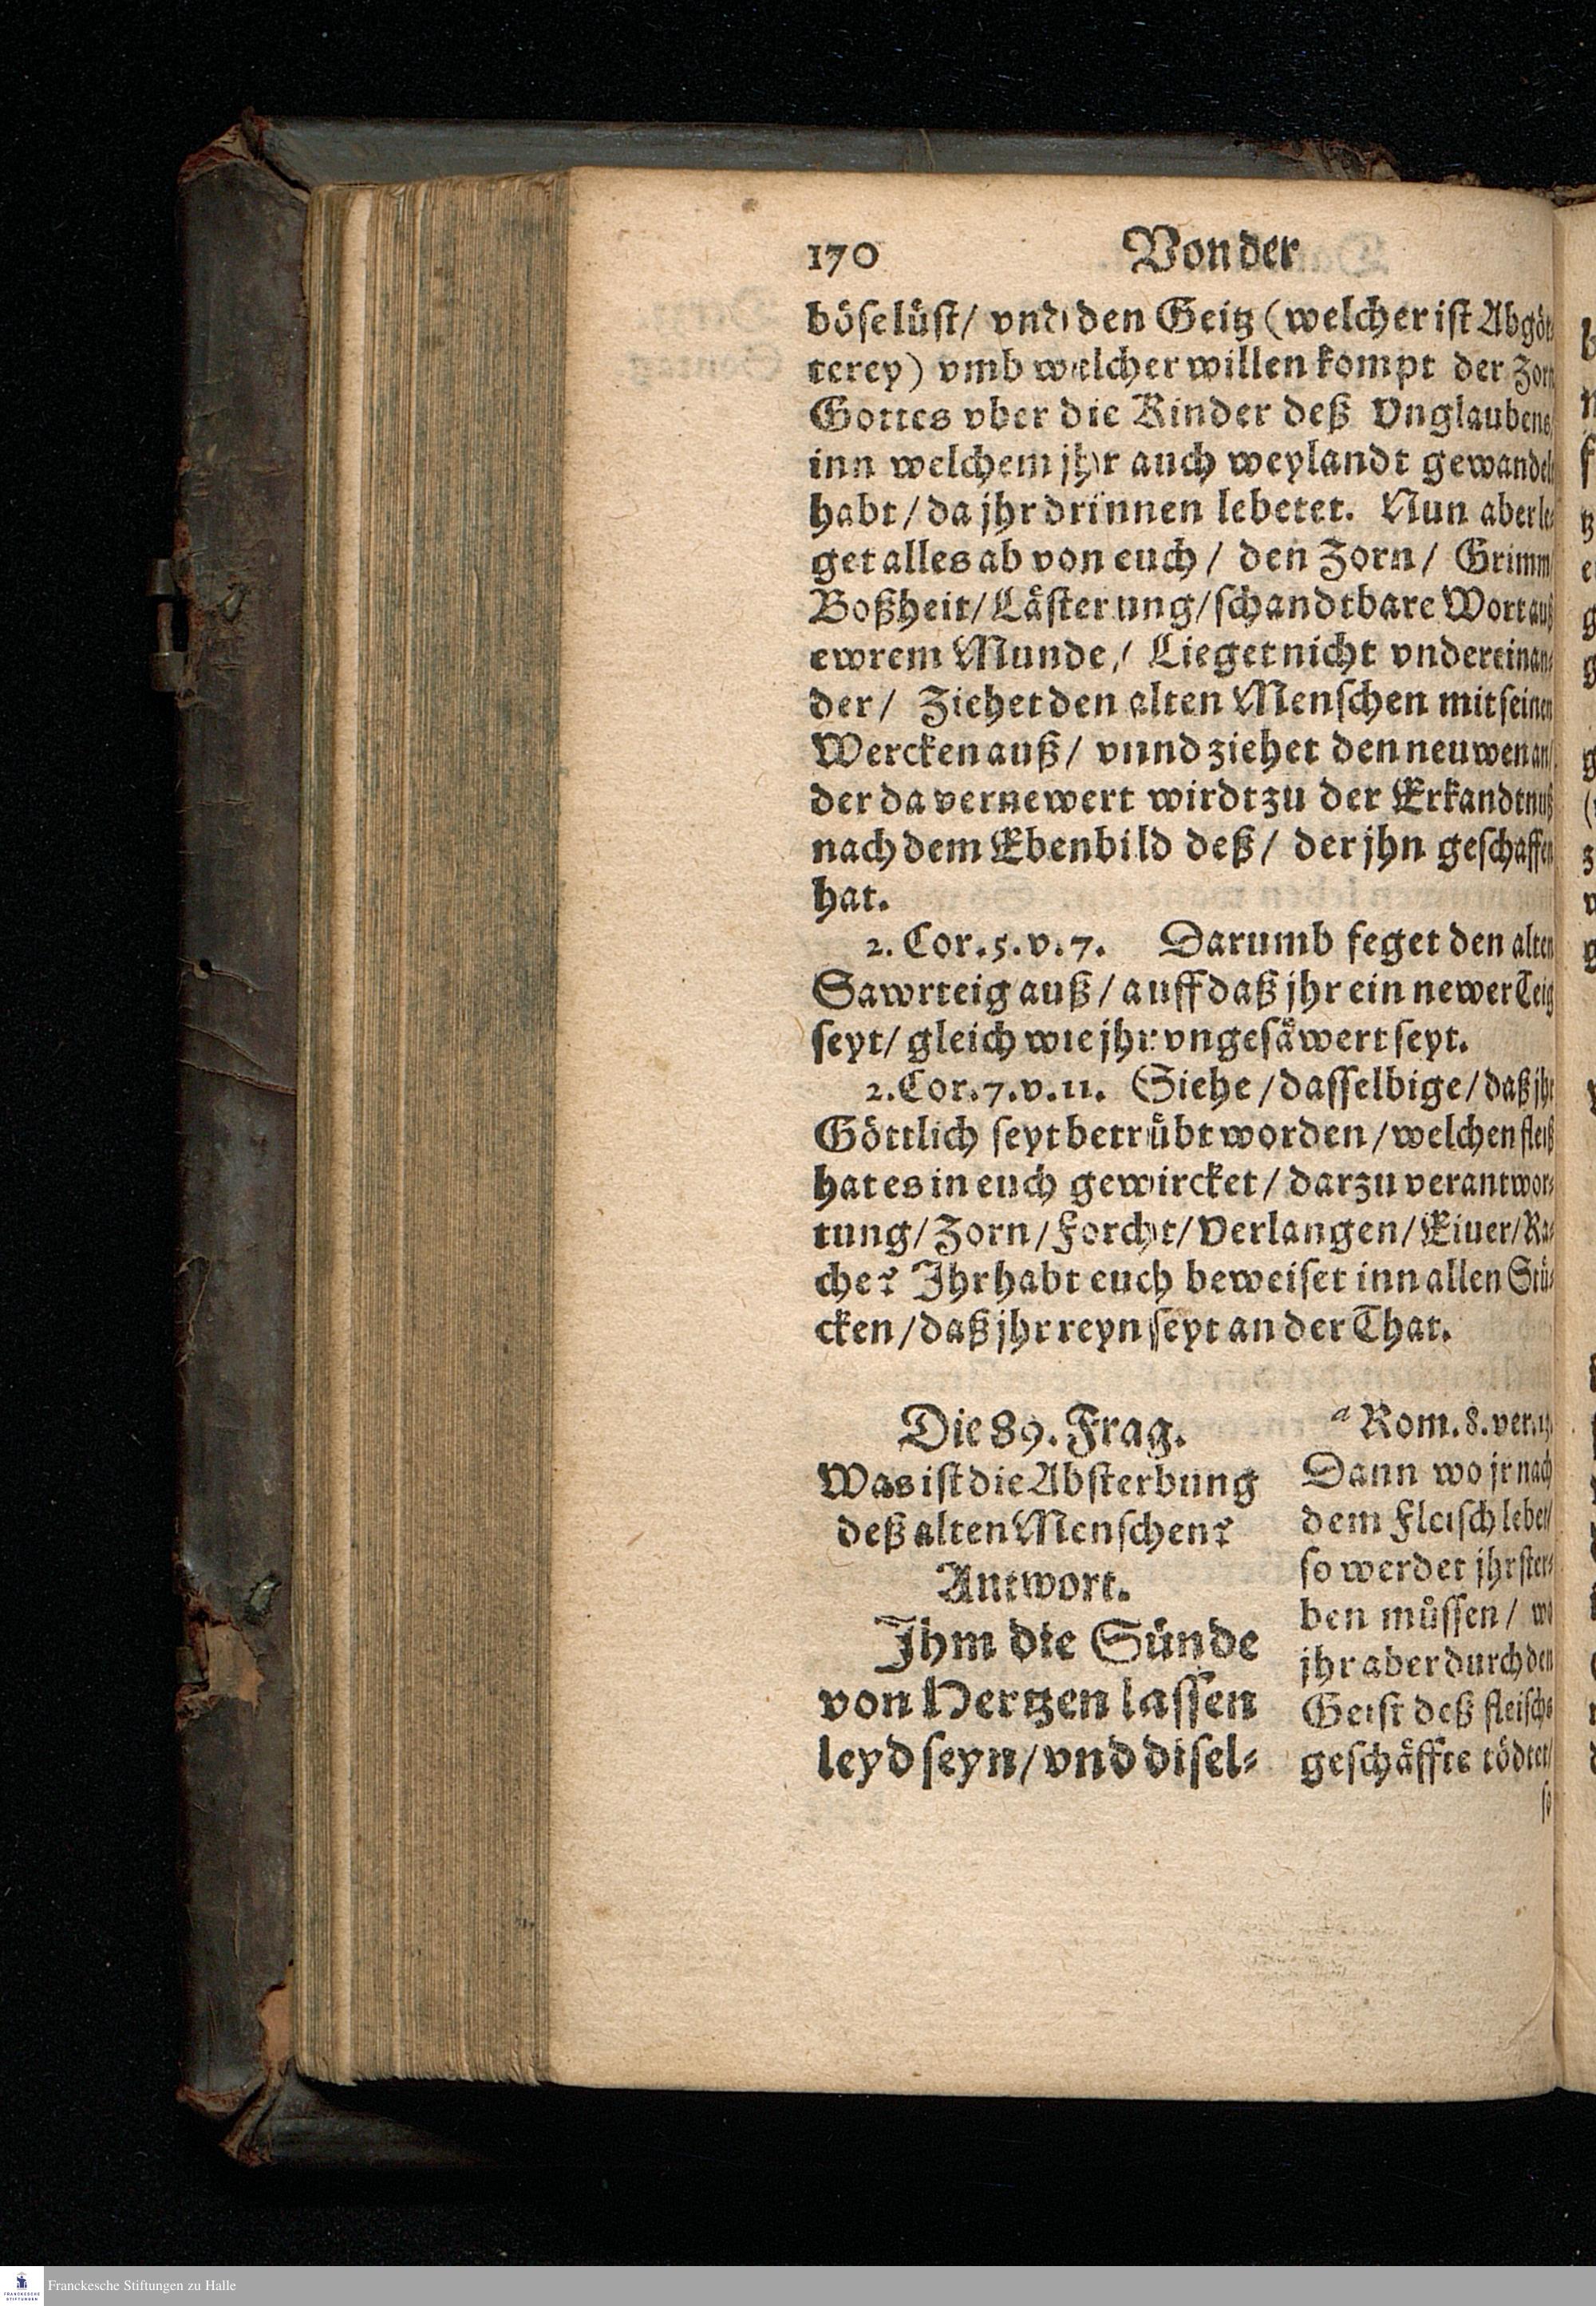 170 Von der
böse lüst/ vnd den Geitz (welcher ist Abgöt-
terey) vmb welcher willen kompt der Zorn
Gottes vber die Kinder deß Vnglaubens/
inn welchem jhr auch weylandt gewandelt
habt/ da jhr drinnen lebetet. Nun aber le-
get alles ab von euch/ den Zorn/ Grimm/
Boßheit/ Lästerung/ schandtbare Wort auß
ewrem Munde/ Lieget nicht vndereinan-
der/ Ziehet den alten Menschen mit seinen
Wercken auß/ vnnd ziehet den neuwen an/
der da vernewert wirdt zu der Erkandtnuß
nach dem Ebenbild deß/ der jhn geschaffen
hat.
2. Cor. 5. v. 7. Darumb feget den alten
Sawrteig auß/ auff daß jhr ein newer Teig
seyt/ gleich wie jhr vngesäwert seyt.
2. Cor. 7. v. 11. Siehe/ dasselbige/ daß jhr
Göttlich seyt betrübt worden/ welchen fleiß
hat es in euch gewircket/ darzu verantwor-
tung/ Zorn/ Forcht/ Verlangen/ Eiuer/ Ra-
che? Ihr habt euch beweiset inn allen Stü-
cken/ daß jhr reyn seyt an der That.
Die 89. Frag.
Was ist die Absterbung
deß alten Menschen?
Antwort.
Ihm die Sünde
von Hertzen lassen
leyd seyn/ vnd disel-
a Rom. 8. ver. 13.
Dann wo jr nach
dem Fleisch lebet/
so werdet jhr ster-
ben müssen/ wo
jhr aber durch den
Geist deß fleischs
geschäffte tödtet/
so
Franckesche Stiftungen zu Halle